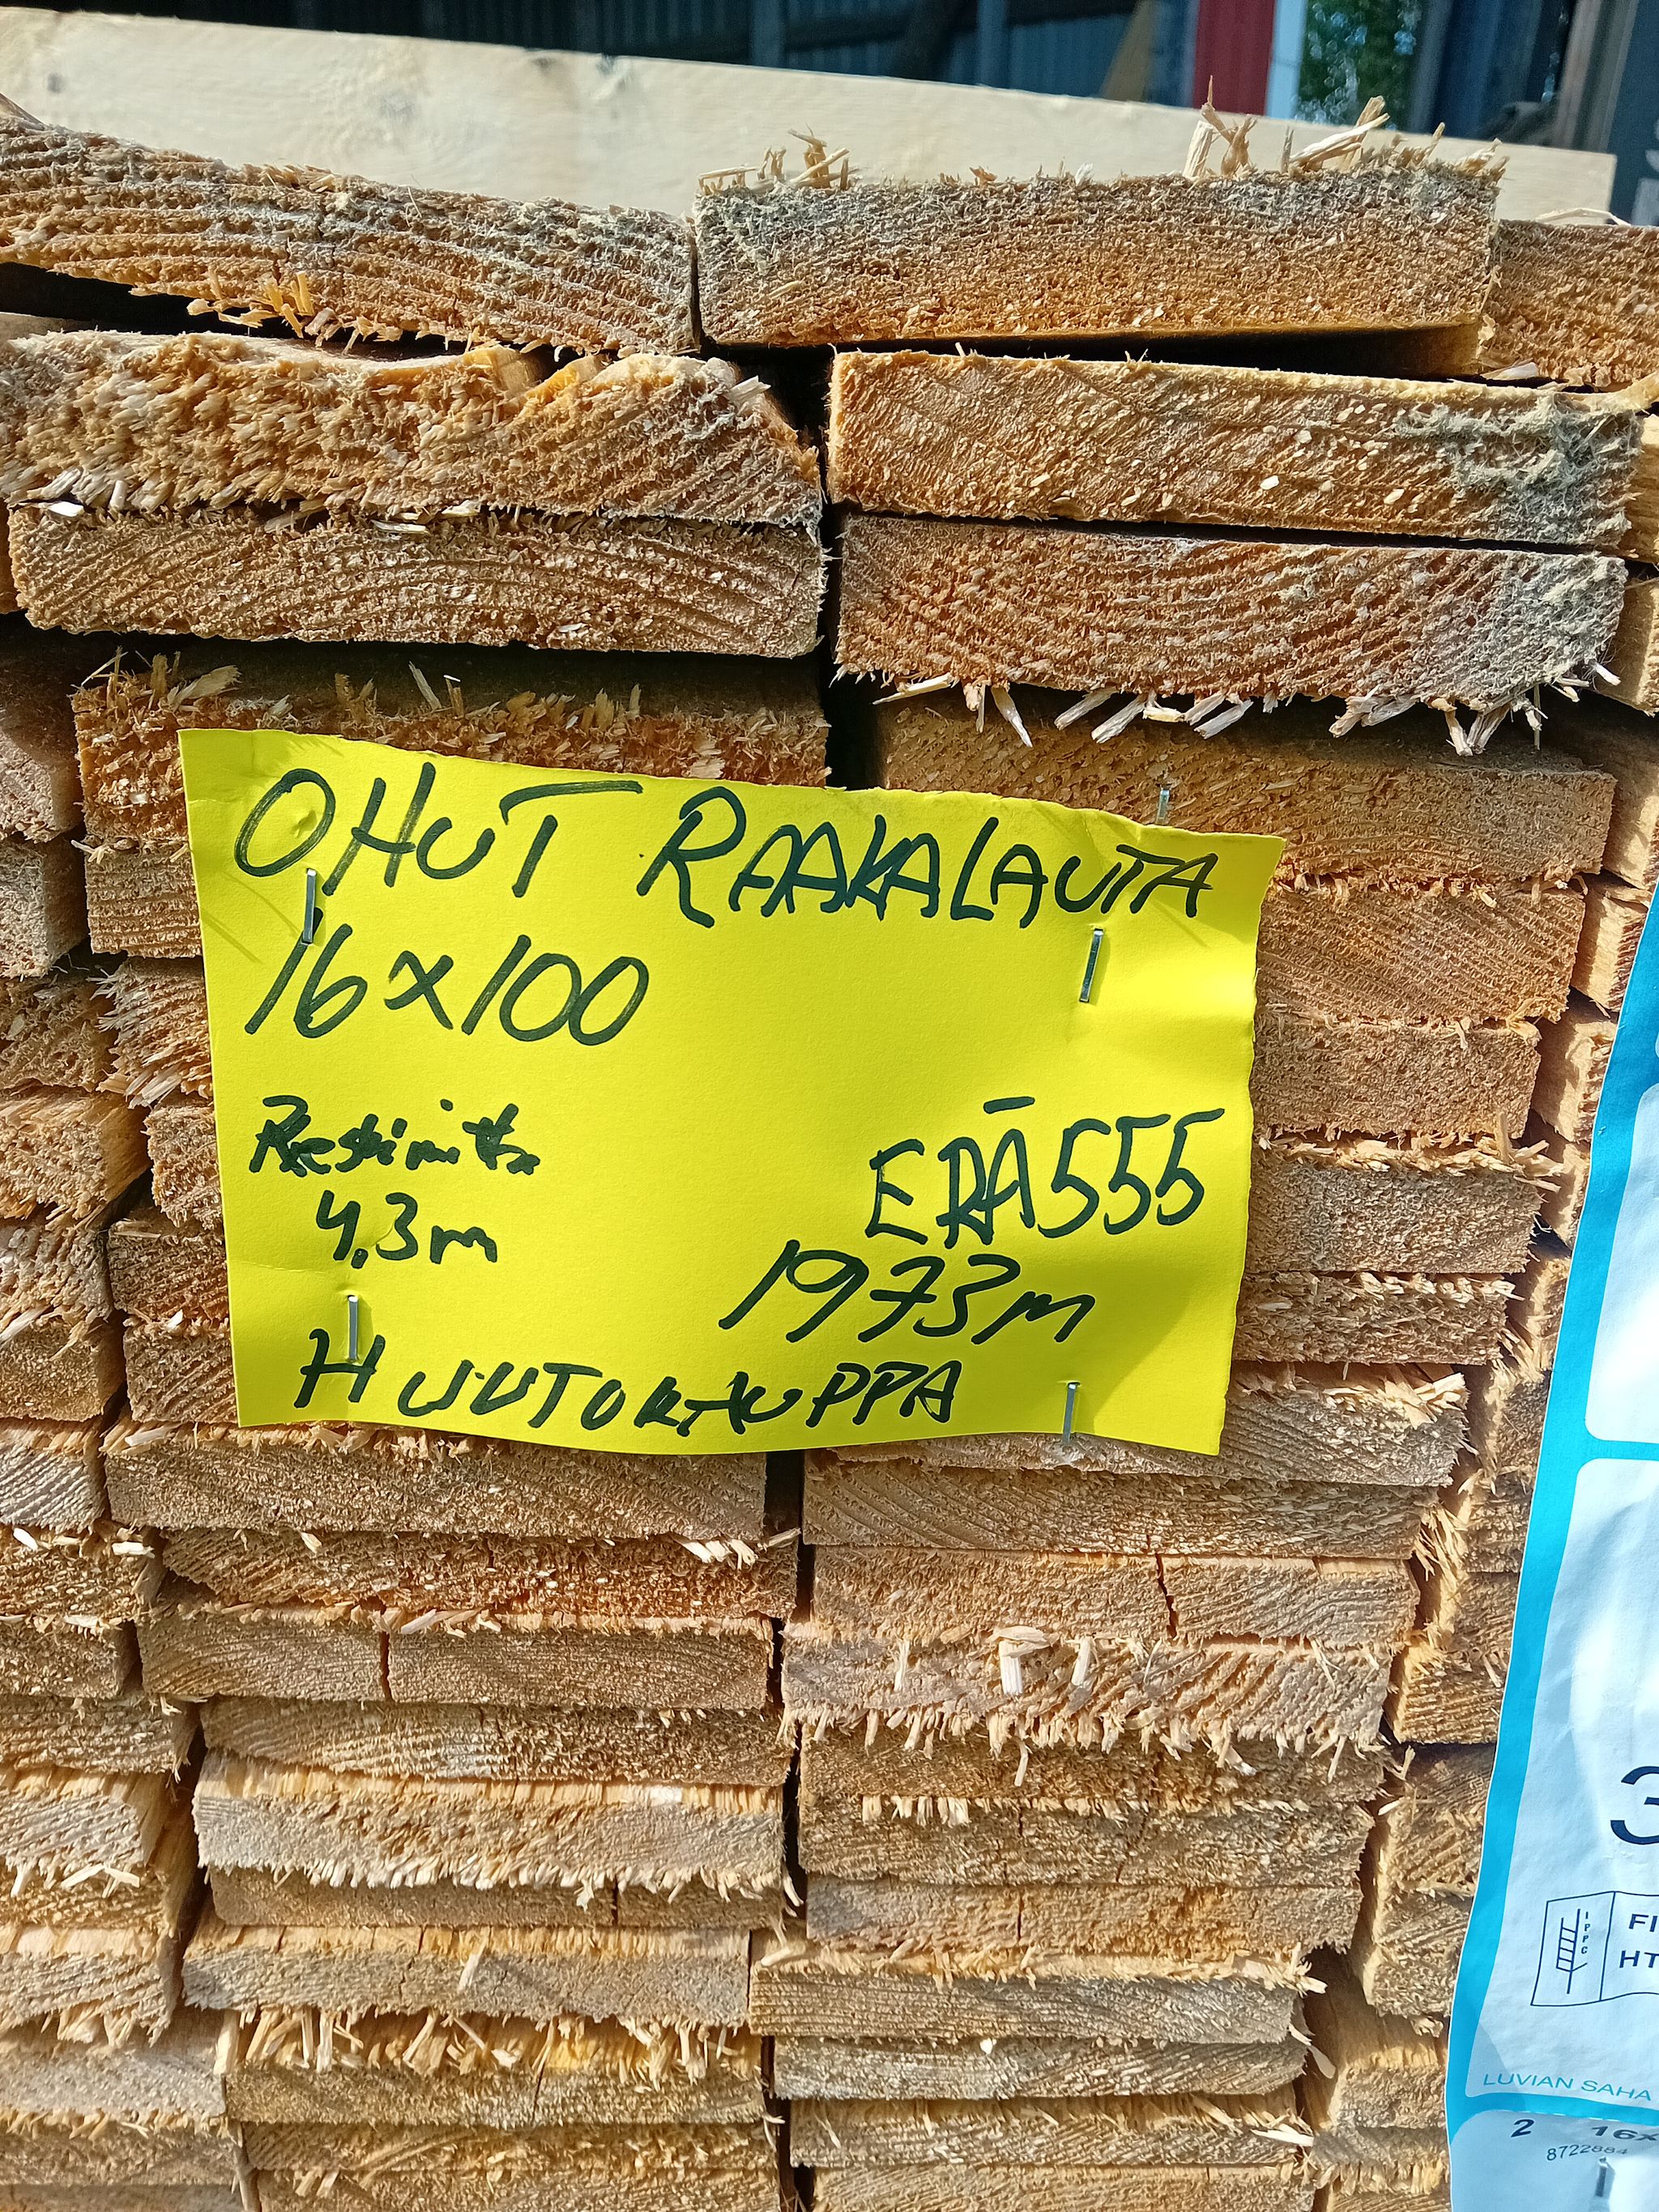 OHUT RAAKALAUTA
16x100
Keskimitta
4,3m
ERÄ 555
1973m
HUUTOKAUPPA
3
IPPC
FI
HT
LUVIAN SAHA
2 16x
8722884